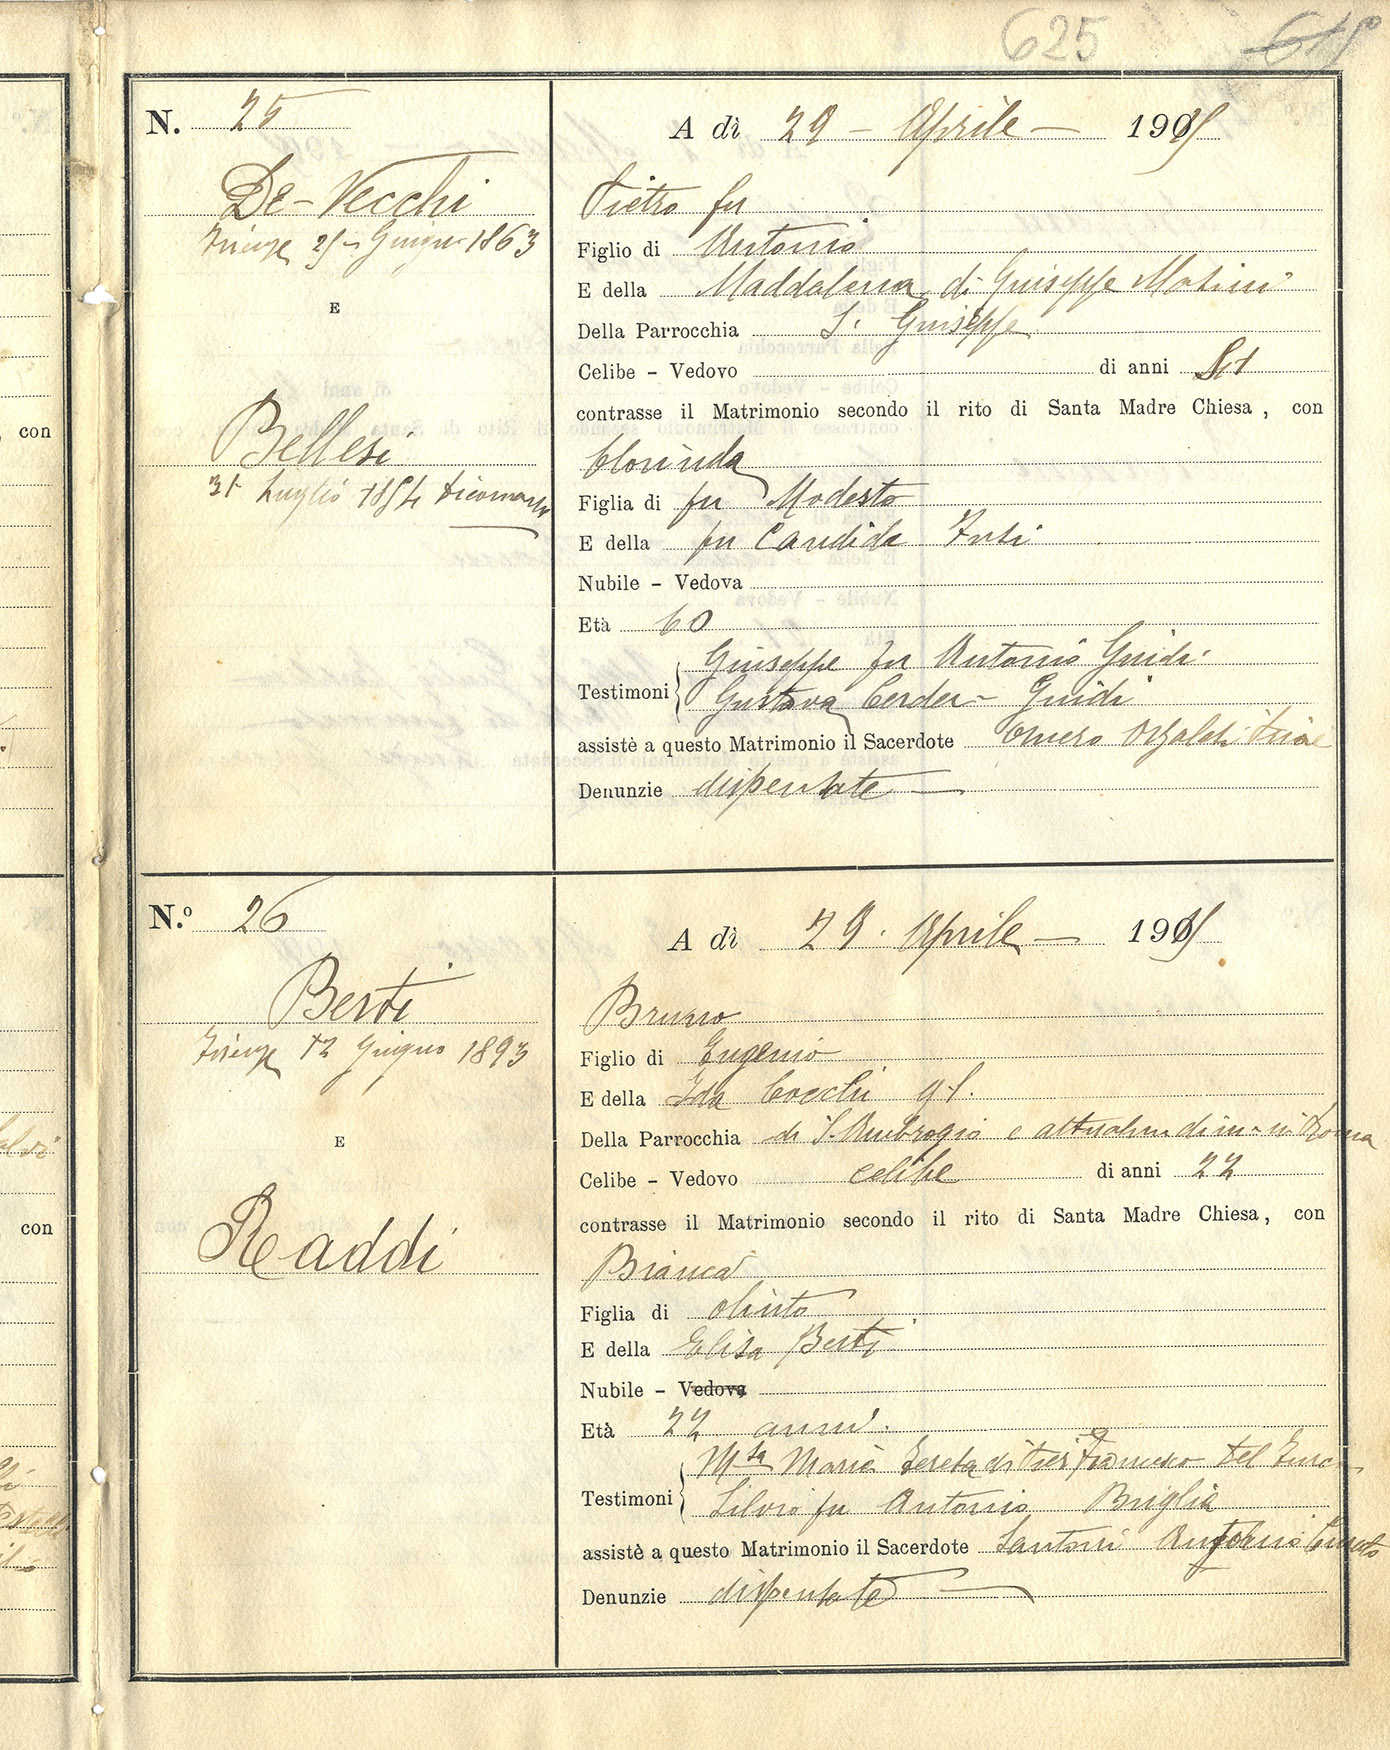 625
N. 25
A dì 29 - Aprile - 1915
De-Vecchi
Firenze 25 Giugno 1863
E
Bellesi
31 Luglio 1854 Dicomano
Pietro fu
Figlio di Antonio
E della Maddalena di Giuseppe Masini
Della Parrocchia S. Giuseppe
Celibe - Vedovo di anni 51
contrasse il Matrimonio secondo il rito di Santa Madre Chiesa, con
Clorinda
Figlia di fu Modesto
E della fu Candida
Nubile - Vedova
Età 60
Testimoni Giuseppe fu Antonio Guidi
Gustava Guidi
assistè a questo Matrimonio il Sacerdote Omero
Denunzie dispensate
N.º 26
A dì 29. Aprile - 1915
Berti
Firenze 12 Giugno 1893
E
Raddi
Bruno
Figlio di Eugenio
E della Ida Cocchi
Della Parrocchia di S. Ambrogio e Roma
Celibe - Vedovo celibe di anni 22
contrasse il Matrimonio secondo il rito di Santa Madre Chiesa, con
Bianca
Figlia di Olinto
E della Elisa Berti
Nubile - Vedova
Età 22 anni.
Testimoni Maria Teresa Francesco Del Turco
Silvio fu Antonio Briglia
assistè a questo Matrimonio il Sacerdote Santoni Antonio Curato
Denunzie dispensate
con
con